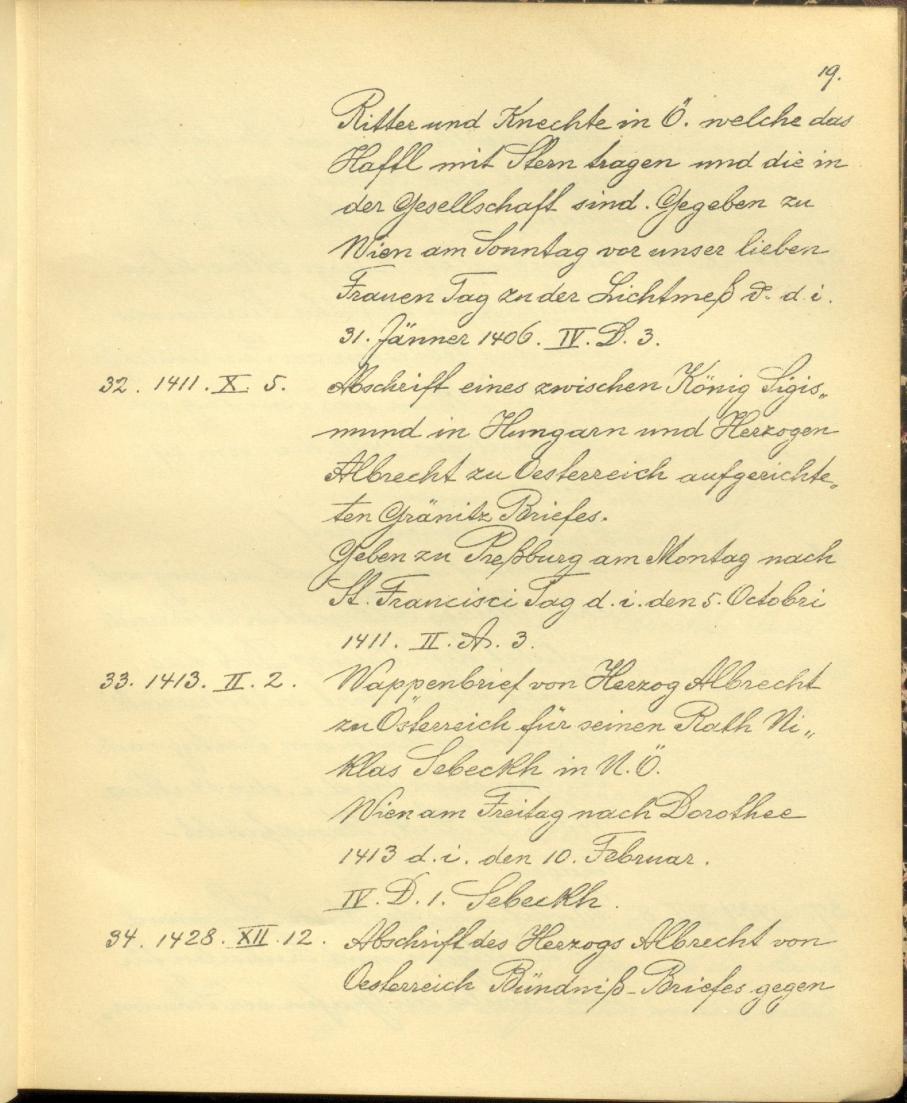 19.
Ritter und Knechte in Ö. welche das
Haftl mit Stern tragen und die in
der Gesellschaft sind. Gegeben zu
Wien am Sonntag vor unser lieben
Frauen Tag zu der Lichtmeß d. i.
31. Jänner 1406. IV. D. 3.
32. 1411. X. 5. Abschrift eines zwischen König Sigis„
mund in Hungarn und Herzogen
Albrecht zu Oesterreich aufgerichte„
ten Gränitz Briefes.
Geben zu Preßburg am Montag nach
St. Francisci Tag d. i. den 5. Octobri
1411. II. A. 3.
33. 1413. II. 2. Wappenbrief von Herzog Albrecht
zu Österreich für seinen Rath Ni„
klas Sebeckh in N.Ö.
Wien am Freitag nach Dorothee
1413 d. i. den 10. Februar.
IV. D. 1. Sebeckh.
34. 1428. XII. 12. Abschrift des Herzogs Albrecht von
Oesterreich Bündniß-Briefes gegen